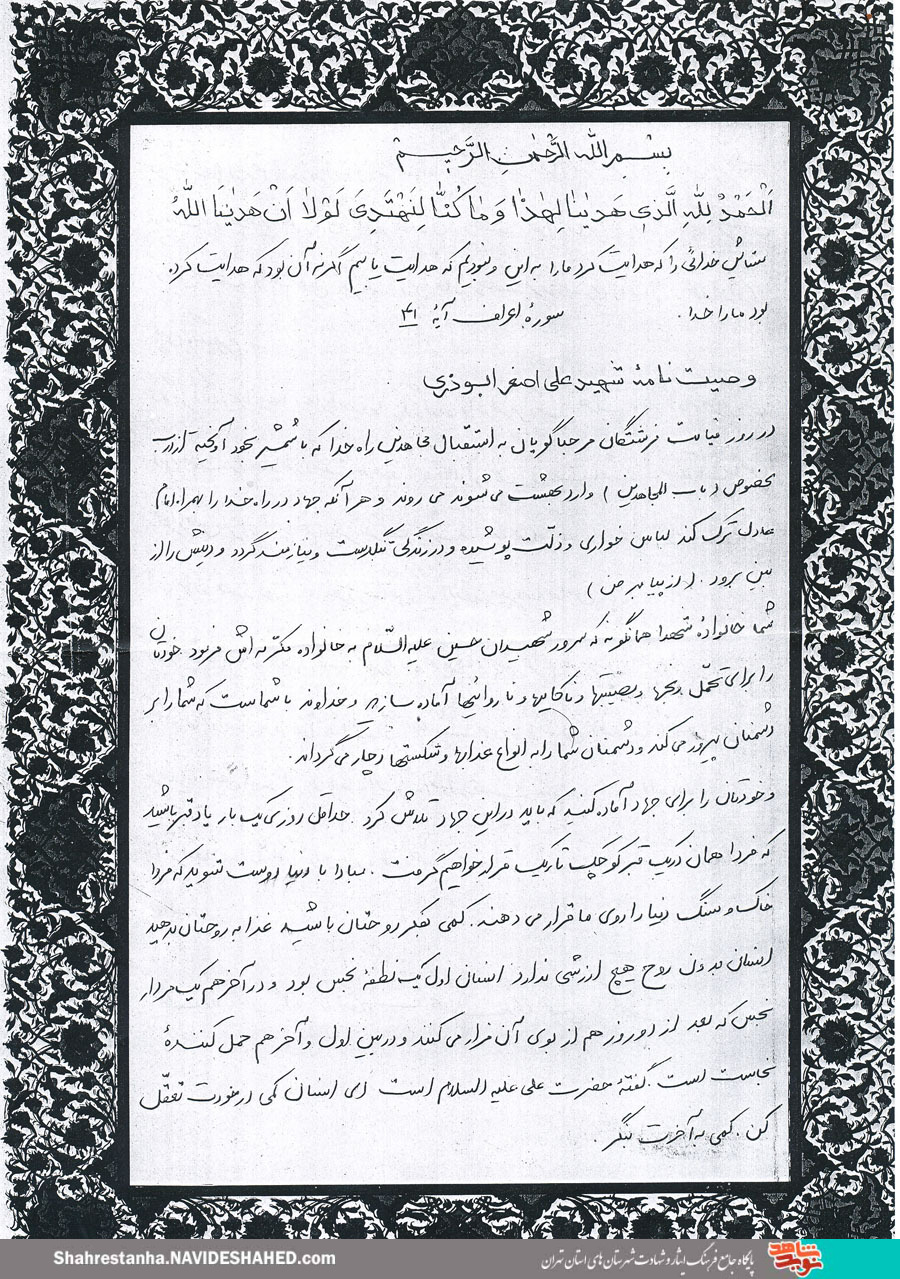 بسم الله الرحمن الرحیم
اَلْحَمْدُ لِلّهِ الَّذِی هَدیٰنا لِهٰذا وَ مٰا کُنّٰا لِنَهْتَدِیَ لَوْلاٰ اَنْ هَدیٰنَا اللّهُ
ستایش خدائی را که هدایت کرد ما را به این و نبودیم که هدایت یابیم اگر نه آن بود که هدایت کرده
بود ما را خدا . سورهٔ اعراف آیهٔ ۴۱
وصیت نامهٔ شهید علی اصغر ابوذری
در روز قیامت فرشتگان مرحبا گویان به استقبال مجاهدین راه خدا که با شمشیر بخود آویخته از درب
بخصوص (باب المجاهدین) وارد بهشت می شوند می روند و هر آنکه جهاد در راه خدا را بهمراه امام
عادل ترک کند لباس خواری و ذلّت پوشیده و در زندگی تنگدست و نیازمند گردد و دینش را از
بین ببرد . (از پیامبر ص)
شما خانوادهٔ شهدا همانگونه که سرور شهیدان حسین علیه السّلام به خانواده مکرمه اش فرمود خودتان
را برای تحمّل رنجها و مصیبتها و ناکامیها و ناروائیها آماده سازید و خداوند با شماست که شما را بر
دشمنان پیروز می کند و دشمنان شما را به انواع عذابها و شکستها دچار می گرداند .
و خودتان را برای جهاد آماده کنید که باید در این جهاد تلاش کرد . حداقل روزی یک بار یاد قبر باشید
که فردا همان در یک قبر کوچک تاریک قرار خواهیم گرفت . مبادا با دنیا دوست شوید که فردا
خاک و سنگ دنیا را روی ما قرار می دهند . کمی بفکر روحتان باشید غذا به روحتان بدهید
انسان بدون روح هیچ ارزشی ندارد انسان اول یک نطفهٔ نجس بود و در آخر هم یک مردار
نجس که بعد از دو روز هم از بوی آن فرار می کنند و در بین اول و آخر هم حمل کنندهٔ
نجاست است . گفتهٔ حضرت علی علیه السلام است ای انسان کمی در خودت تعقّل
کن . کمی به آخرت بنگر .
Shahrestanha.NAVIDESHAHED.com
پایگاه جامع فرهنگ ایثار و شهادت شهرستان های استان تهران
نوید شاهد